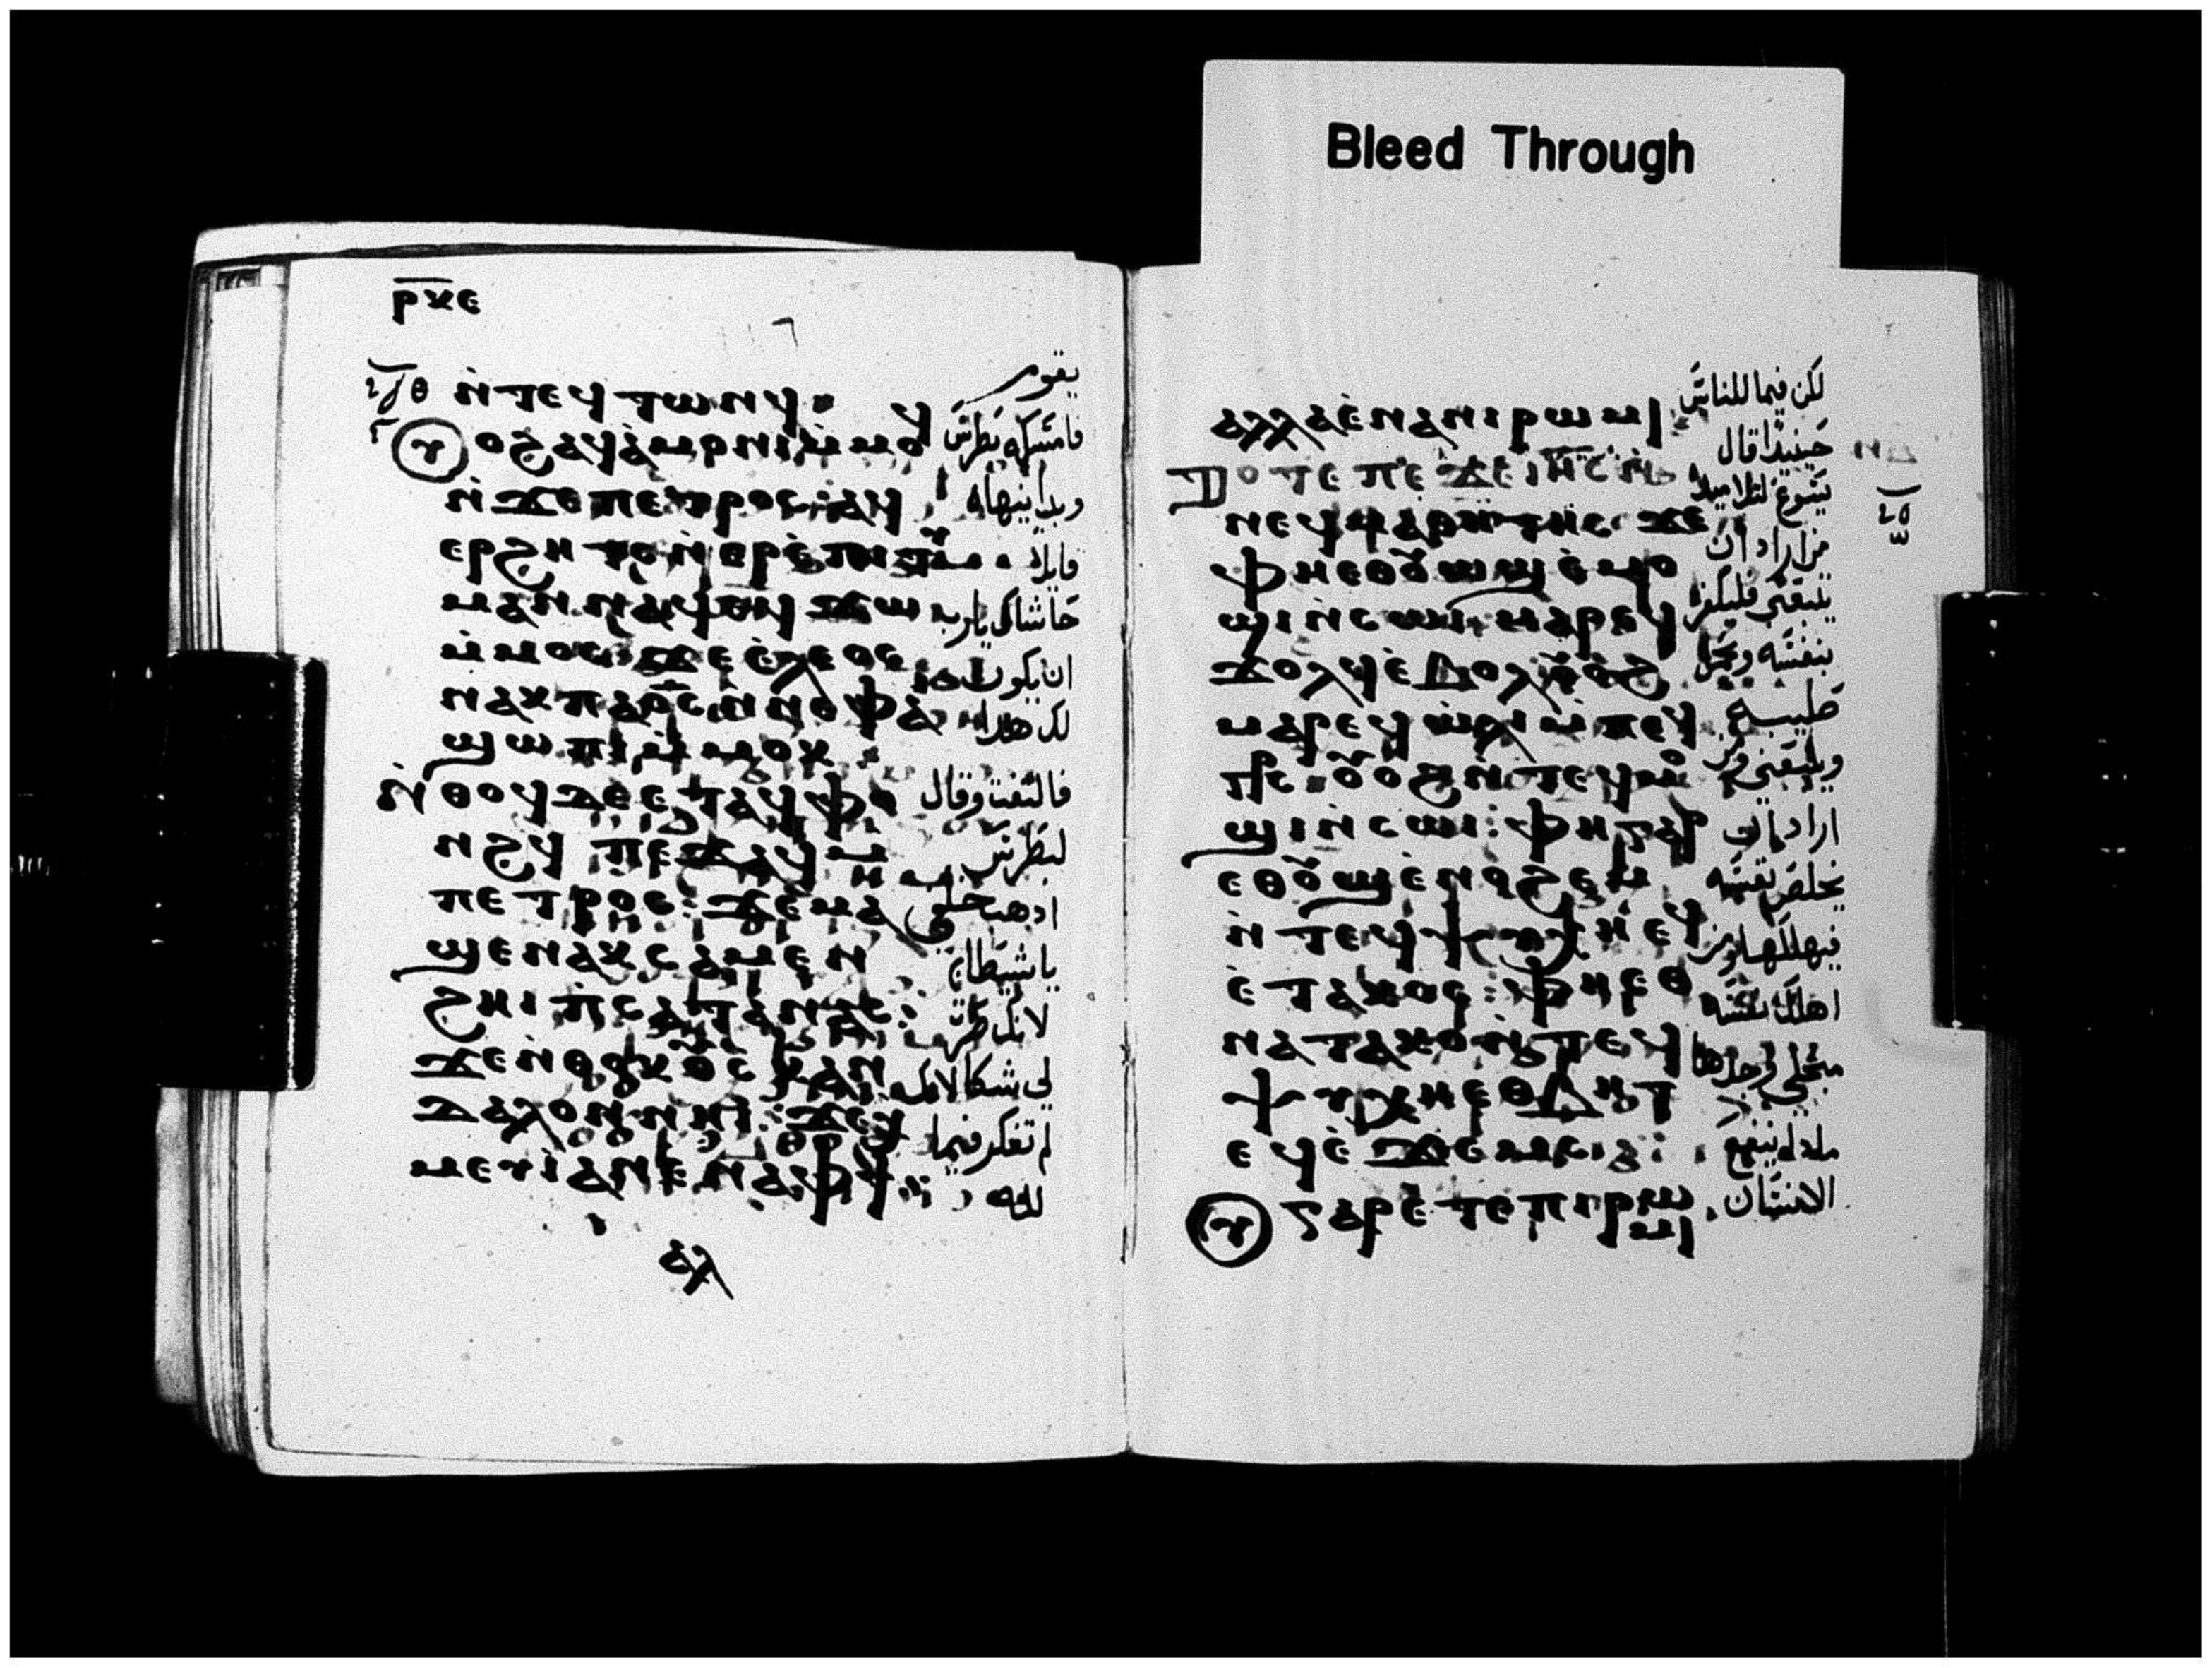 Bleed Through
ⲣⲕⲉ
ⲛ̀ⲧⲉϥⲧⲱⲛϥ
يقوم
ⲟϩⲁϥⲁ̀ⲙⲟⲛⲓ ⲙ̀ⲙⲟϥ
فامسكه بطرس
ⲛ̀ϫⲉⲡⲉⲧⲣⲟⲥ: ⲁϥ
وبدا ينهاه
ⲉⲣϩⲏⲧⲥ ⲛ̀ⲉⲣⲉ̀ⲡⲓⲧⲓⲙⲁⲛ
قايلا
ⲛⲁϥ ⲉϥϫⲱ
حاشاك يارب
ⲙ̀ⲙⲟⲥ: ϫⲉ ⲉ̀ⲗⲉⲟⲥ
ان يكون
ⲛⲁⲕ ⲡⲁⲟ̅ⲥ̅ ⲛ̀ⲛⲉ ⲫⲁⲓ
لك هدا
ϣⲱⲡⲓ ⲙ̀ⲙⲟⲕ
ⲛ̀ⲑⲟϥ ⲇⲉ ⲉ̀ⲧⲁϥⲫⲟ
فالتفت وقال
ⲛϩϥ ⲡⲉϫⲁϥ ⲙ
لبطرس
ⲡⲉⲧⲣⲟⲥ: ϫⲉ ⲙⲁ
ادهب خلفي
ϣⲉⲛⲁⲕ ⲥⲁⲙⲉⲛ
يا شيطان
ϩⲏⲓ ⲡ̀ⲥⲁⲧⲁⲛⲁⲥ:
لانك صرت
ϫⲉ ⲛ̀ⲑⲟⲕ ⲟⲩⲥⲕⲁⲛ
لي شكا لانك
ⲇⲁⲗⲟⲛ ⲛⲏⲓ: ϫⲉ ⲭ
لم تفكر فيما
ⲙⲉⲩⲓ ⲁⲛ ⲉ̀ⲛⲁⲫϯ
لله
ⲁⲗ
ⲁⲗⲗⲁ ⲉ̀ⲛⲁⲛⲓⲣⲱⲙⲓ
لكن فيما للناس
ⲧⲟⲧⲉ ⲡⲉϫⲉ ⲓⲏ̅ⲥ̅ ⲛ̀
حينيدا قال
ⲛⲉϥⲙⲁⲑⲏⲧⲏⲥ ϫⲉ
يسوع لتلاميده
ⲫⲏⲉⲑⲟⲩⲱϣ ⲉ̀ⲙⲟ
من اراد ان
ϣⲓ ⲛ̀ⲥⲱⲓ ⲙⲁⲣⲉϥ
يتبعني فليكفر
ϫⲟⲗϥ ⲉ̀ⲃⲟⲗ ⲟⲩⲟϩ
بنفسه ويحمل
ⲙⲁⲣⲉϥⲱⲗⲓ ⲙ̀ⲡⲉϥ
صليبه
ⲟⲩⲟϩ ⲛ̀ⲧⲉϥⲙⲟ
ويتبعني ومن
ϣⲓ ⲛ̀ⲥⲱⲓ: ⲫⲏ ⲅⲁⲣ
اراد ان
ⲉⲑⲟⲩⲱϣ ⲉ̀ⲛⲟϩⲉⲙ
يخلص نفسه
ⲛ̀ⲧⲉϥⲯⲩⲭⲏ ⲉϥ
فيهلكها ومن
ⲉ̀ⲧⲁⲕⲟⲥ: ⲫⲏ ⲉⲑ
اهلك نفسه
ⲛⲁⲧⲁⲕⲟ ⲛ̀ⲧⲉϥ
من اجلي وجدها
ⲯⲩⲭⲏ ⲉⲑⲃⲏⲧ
ⲉϥⲉ̀ϫⲉⲙⲥ:
مادا ينفع
ⲅⲁⲣ ⲉ̀ⲧⲉ ⲡⲓⲣⲱⲙⲓ
الانسان